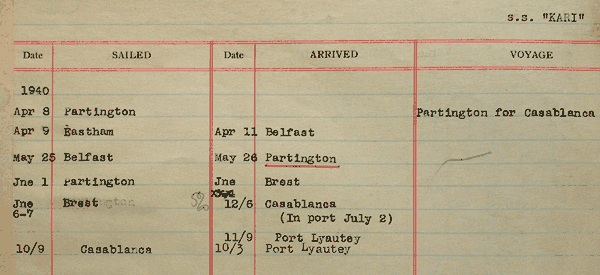 s.s. "KARI"
Date SAILED Date ARRIVED VOYAGE
1940
Apr 8 Partington Partington for Casablanca
Apr 9 Eastham Apr 11 Belfast
May 25 Belfast May 26 Partington
Jne 1 Partington Jne Brest
Jne Brest 12/6 Casablanca
6-7 (In port July 2)
11/9 Port Lyautey
10/9 Casablanca 10/3 Port Lyautey